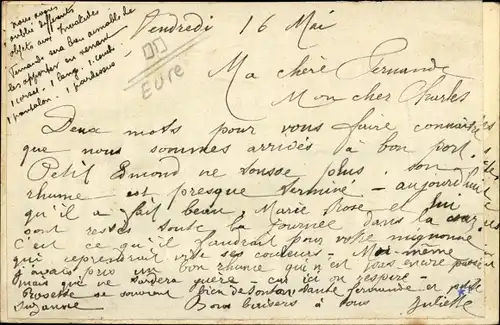 Nous avons
oublié différents
objets aux Invalides
Fernande sera bien aimable de
les apporter en venant
1 corset. 1 lange. 1 couche
1 pantalon. 1 pardessus
Vendredi 16 Mai
Eure
Ma chère Fernande
Mon cher Charles
Deux mots pour vous faire connaître
que nous sommes arrivés à bon port.
Petit Edmond ne tousse plus. son
rhume est presque terminé. - aujourd'hui
qu'il a fait beau, Marie Rose et lui
sont restés toute la journée dans la cour
C'est ce qu'il faudrait pour votre mignonne
qui reprendrait vite ses couleurs - Moi-même
j'avais pris un bon rhume qui n'est pas encore
mais qui ne tardera guère - car ici on respire.
Rosette se souvient bien de tontan tante Fernande et petite
Suzanne Bons baisers à tous Juliette